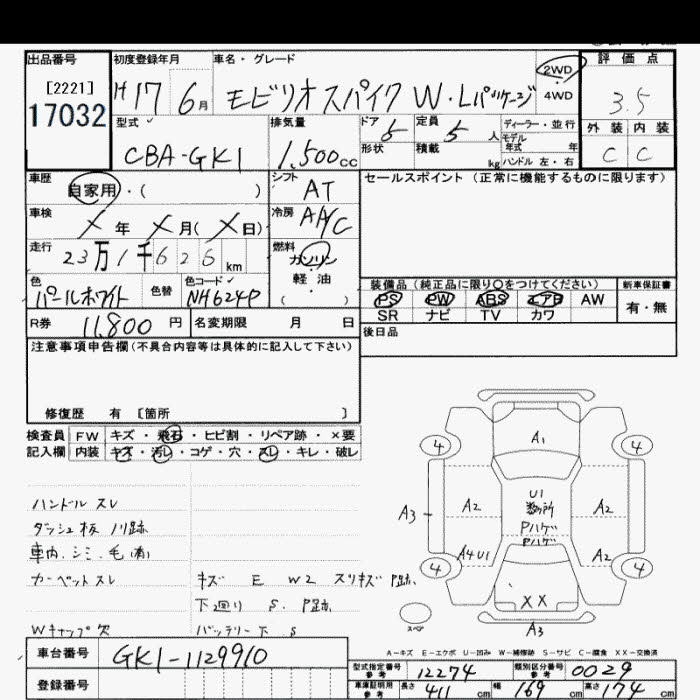 出品番号 初度登録年月 車名・グレード 評価点
[2221]
17032
H17 6月 モビリオスパイク W・Lパッケージ 2WD
4WD
3.5
型式 排気量 ドア 5 定員 5人 ディーラー・並行
モデル年式 年
外装 内装
CBA-GK1 1,500cc
形状 積載 kg ハンドル 左・右
C C
車歴 自家用・( )
シフト AT
セールスポイント(正常に機能するものに限ります)
車検 X年 X月(X日)
冷房 AA/C
走行 23万1千626km
燃料 ガソリン・軽油
( )
色 パールホワイト 色替 色コード NH624P
装備品(純正品に限り○をつけてください) 新車保証書
PS PW ABS エアB AW
SR ナビ TV カワ
有・無
R券 11,800円 名変期限 月 日
後日品
注意事項申告欄(不具合内容等は具体的に記入して下さい)
修復歴 有 〔箇所 〕
検査員 FW キズ・飛石・ヒビ割・リペア跡・×要
記入欄 内装 キズ・汚レ・コゲ・穴・スレ・キレ・破レ
4 A1 4
U1
A3 A2 A2
Pハゲ
Pハゲ
A4 U1 A2
4 4
XX
A3
ハンドル スレ
ダッシュ板 ノリ跡
車内.シミ.毛(有)
カーペットスレ キズ E W2 スリキズ P跡.
下廻り S. P跡.
Wキャップ欠 バッテリー下 S
スペア
A-キズ E-エクボ U-凹み W-補修跡 S-サビ C-腐食 XX-交換済
車台番号 GK1-1129910
登録番号
型式指定番号 参考 12274 類別区分番号 参考 0029
車庫証明用 参考 長さ 411cm 幅 169cm 高さ 174cm